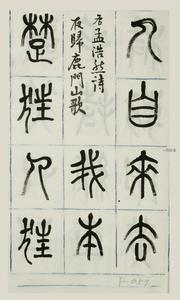 人自來去
右孟浩然詩
夜歸鹿門山歌
我本
楚狂人狂
P-057